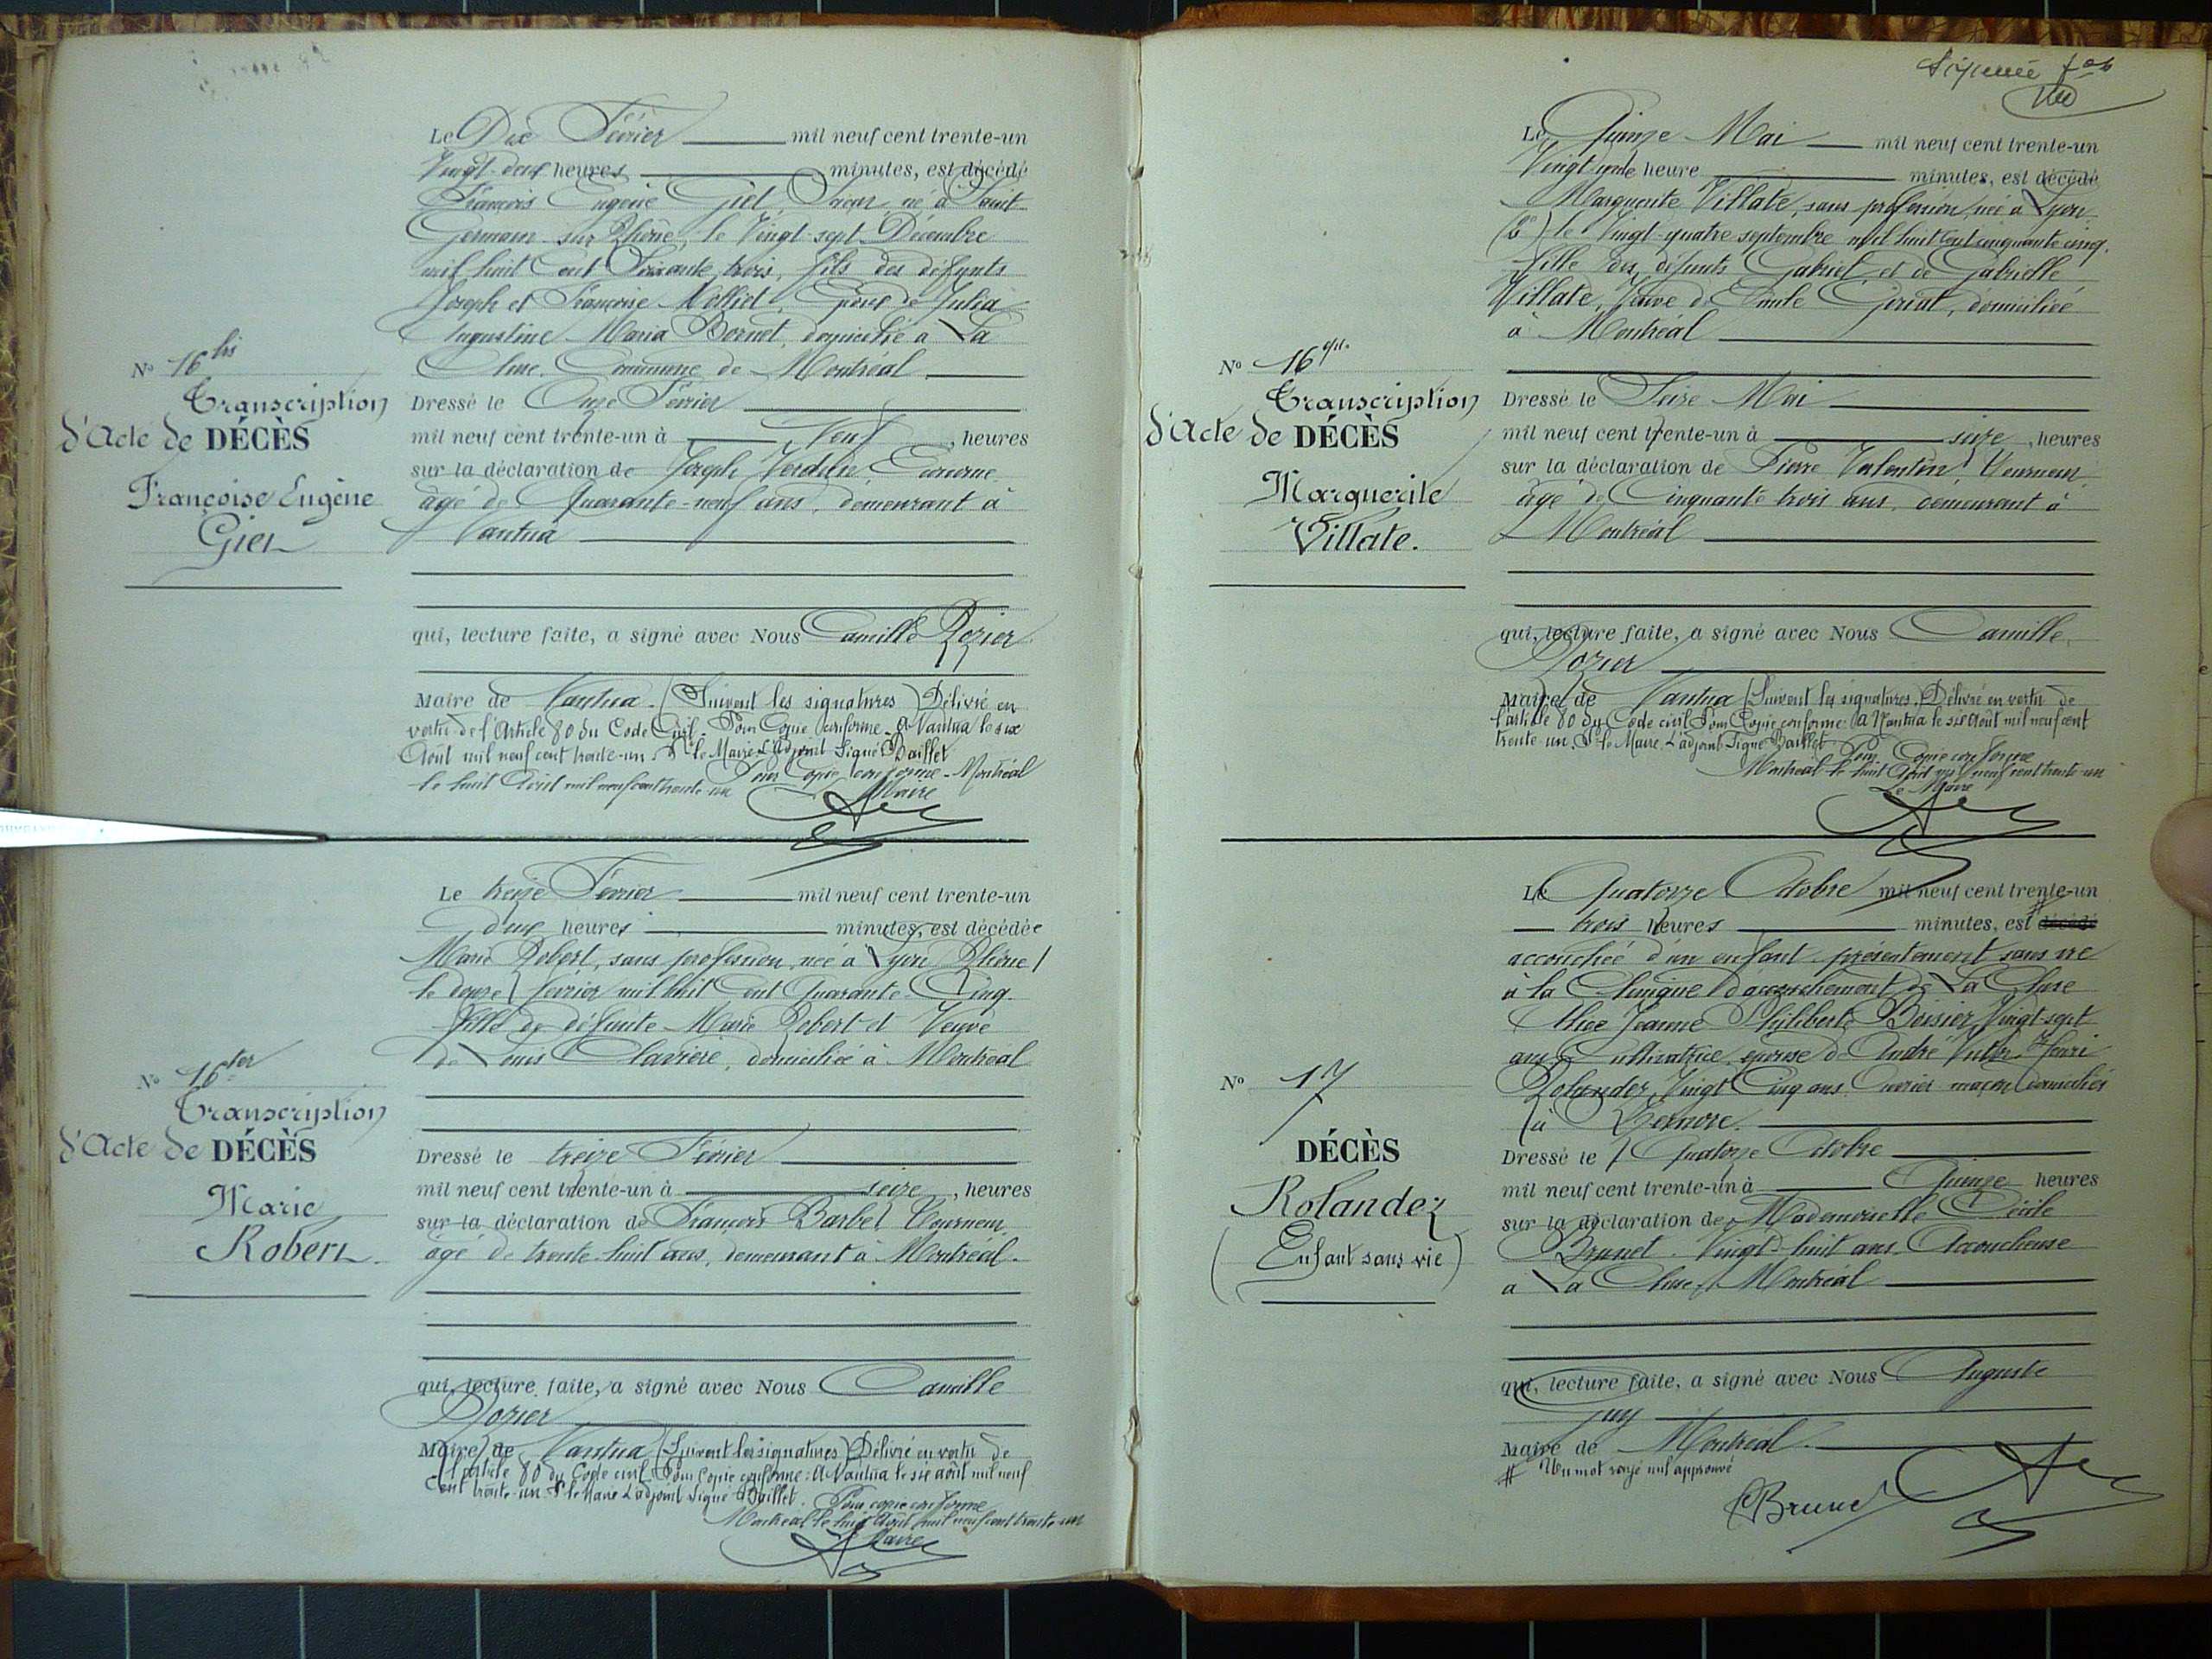 Le Dix Février mil neuf cent trente-un
Vingt-deux heures minutes, est décédé
François Eugène Giet, né à Saint
Germain-sur-Rhône, le Vingt-sept Décembre
mil huit Cent Soixante trois, fils des défunts
Joseph et Françoise Molliet, Epoux de Julia
Augustine Maria Bornet, domicilié à La
Cluse, Commune de Montréal
No 16 bis
Transcription
d'Acte de DÉCÈS
Françoise Eugène
Giet
Dressé le Onze Février
mil neuf cent trente-un à Neuf, heures
sur la déclaration de Joseph Verdun, Econome
âgé de Quarante-neuf ans, demeurant à
Nantua
qui, lecture faite, a signé avec Nous Camille Rozier
Maire de Nantua. (Suivent les signatures) Délivré en
vertu de l'Article 80 du Code Civil. Pour Copie Conforme. à Nantua le six
Août mil neuf cent trente-un. Pr le Maire L'adjoint Signé Baillet
Pour Copie conforme - Montréal
le huit Août mil neuf cent trente-un
Maire
Le treize Février mil neuf cent trente-un
deux heures minutes, est décédée
Marie Robert, sans profession, née à Lyon Rhône)
le douze février mil huit cent Quarante-Cinq
fille de défunte Marie Robert et Veuve
de Louis Clavière, domiciliée à Montréal
No 16 ter
Transcription
d'Acte de DÉCÈS
Marie
Robert.
Dressé le treize Février
mil neuf cent trente-un à seize, heures
sur la déclaration de François Barbet,
âgé de trente-huit ans, demeurant à Montréal.
qui, lecture faite, a signé avec Nous Camille
Rozier
Maire de Nantua (Suivent les signatures) Délivré en vertu de
l'article 80 du Code civil. Pour Copie conforme: A Nantua le six août mil neuf
cent trente-un. Pr le Maire L'adjoint Signé Baillet. Pour copie conforme
Montréal le huit Août mil neuf cent trente-un
Le Maire
Le Quinze Mai mil neuf cent trente-un
Vingt-une heure minutes, est décédé
Marguerite Villate, sans profession, née à Lyon
(2e) le Vingt-quatre septembre mil huit cent cinquante cinq.
Fille des défunts Gabriel et de Gabrielle
Villate, Veuve de Emile Goriat, domiciliée
à Montréal
No 16 qu.
Transcription
d'Acte de DÉCÈS
Marguerite
Villate.
Dressé le Seize Mai
mil neuf cent trente-un à seize, heures
sur la déclaration de Pierre Valentin,
âgé de Cinquante trois ans, demeurant à
Montréal
qui, lecture faite, a signé avec Nous Camille
Rozier
Maire de Nantua (Suivent les signatures). Délivré en vertu de
l'article 80 du Code civil Pour Copie conforme: à Nantua le six Août mil neuf cent
trente-un. Pr le Maire L'adjoint Signé Baillet Pour Copie conforme
Montréal le huit Août mil neuf cent trente-un
Le Maire
Le Quatorze Octobre mil neuf cent trente-un
trois heures minutes, est décédé
accouchée d'un enfant présentement sans vie
à la Clinique d'accouchement de La Cluse
Alice Jeanne Philiberte Boisier, Vingt-sept
ans, Cultivatrice, épouse de André Victor Henri
Rolandez, Vingt Cinq ans, Ouvrier maçon, domiciliés
à Bernore.
No 17
DÉCÈS
Rolandez
(Enfant sans vie)
Dressé le Quatorze Octobre
mil neuf cent trente-un à Quinze heures
sur la déclaration de Mademoiselle Cécile
Brunet. Vingt-huit ans. Accoucheuse
à La Cluse, Montréal
qui, lecture faite, a signé avec Nous Auguste
Juy
Maire de Montréal.
# Un mot rayé nul approuvé
CBrunet